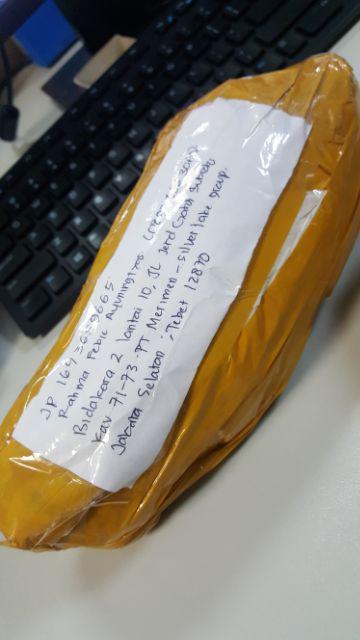 JP 1643659665
Rahma Febie Ayuningtyas
Bidakara 2 lantai 10, JL Jend Gatot Subroto
kav 71-73. PT Merimen - silver lake group.
Jakarta Selatan, Tebet 12870